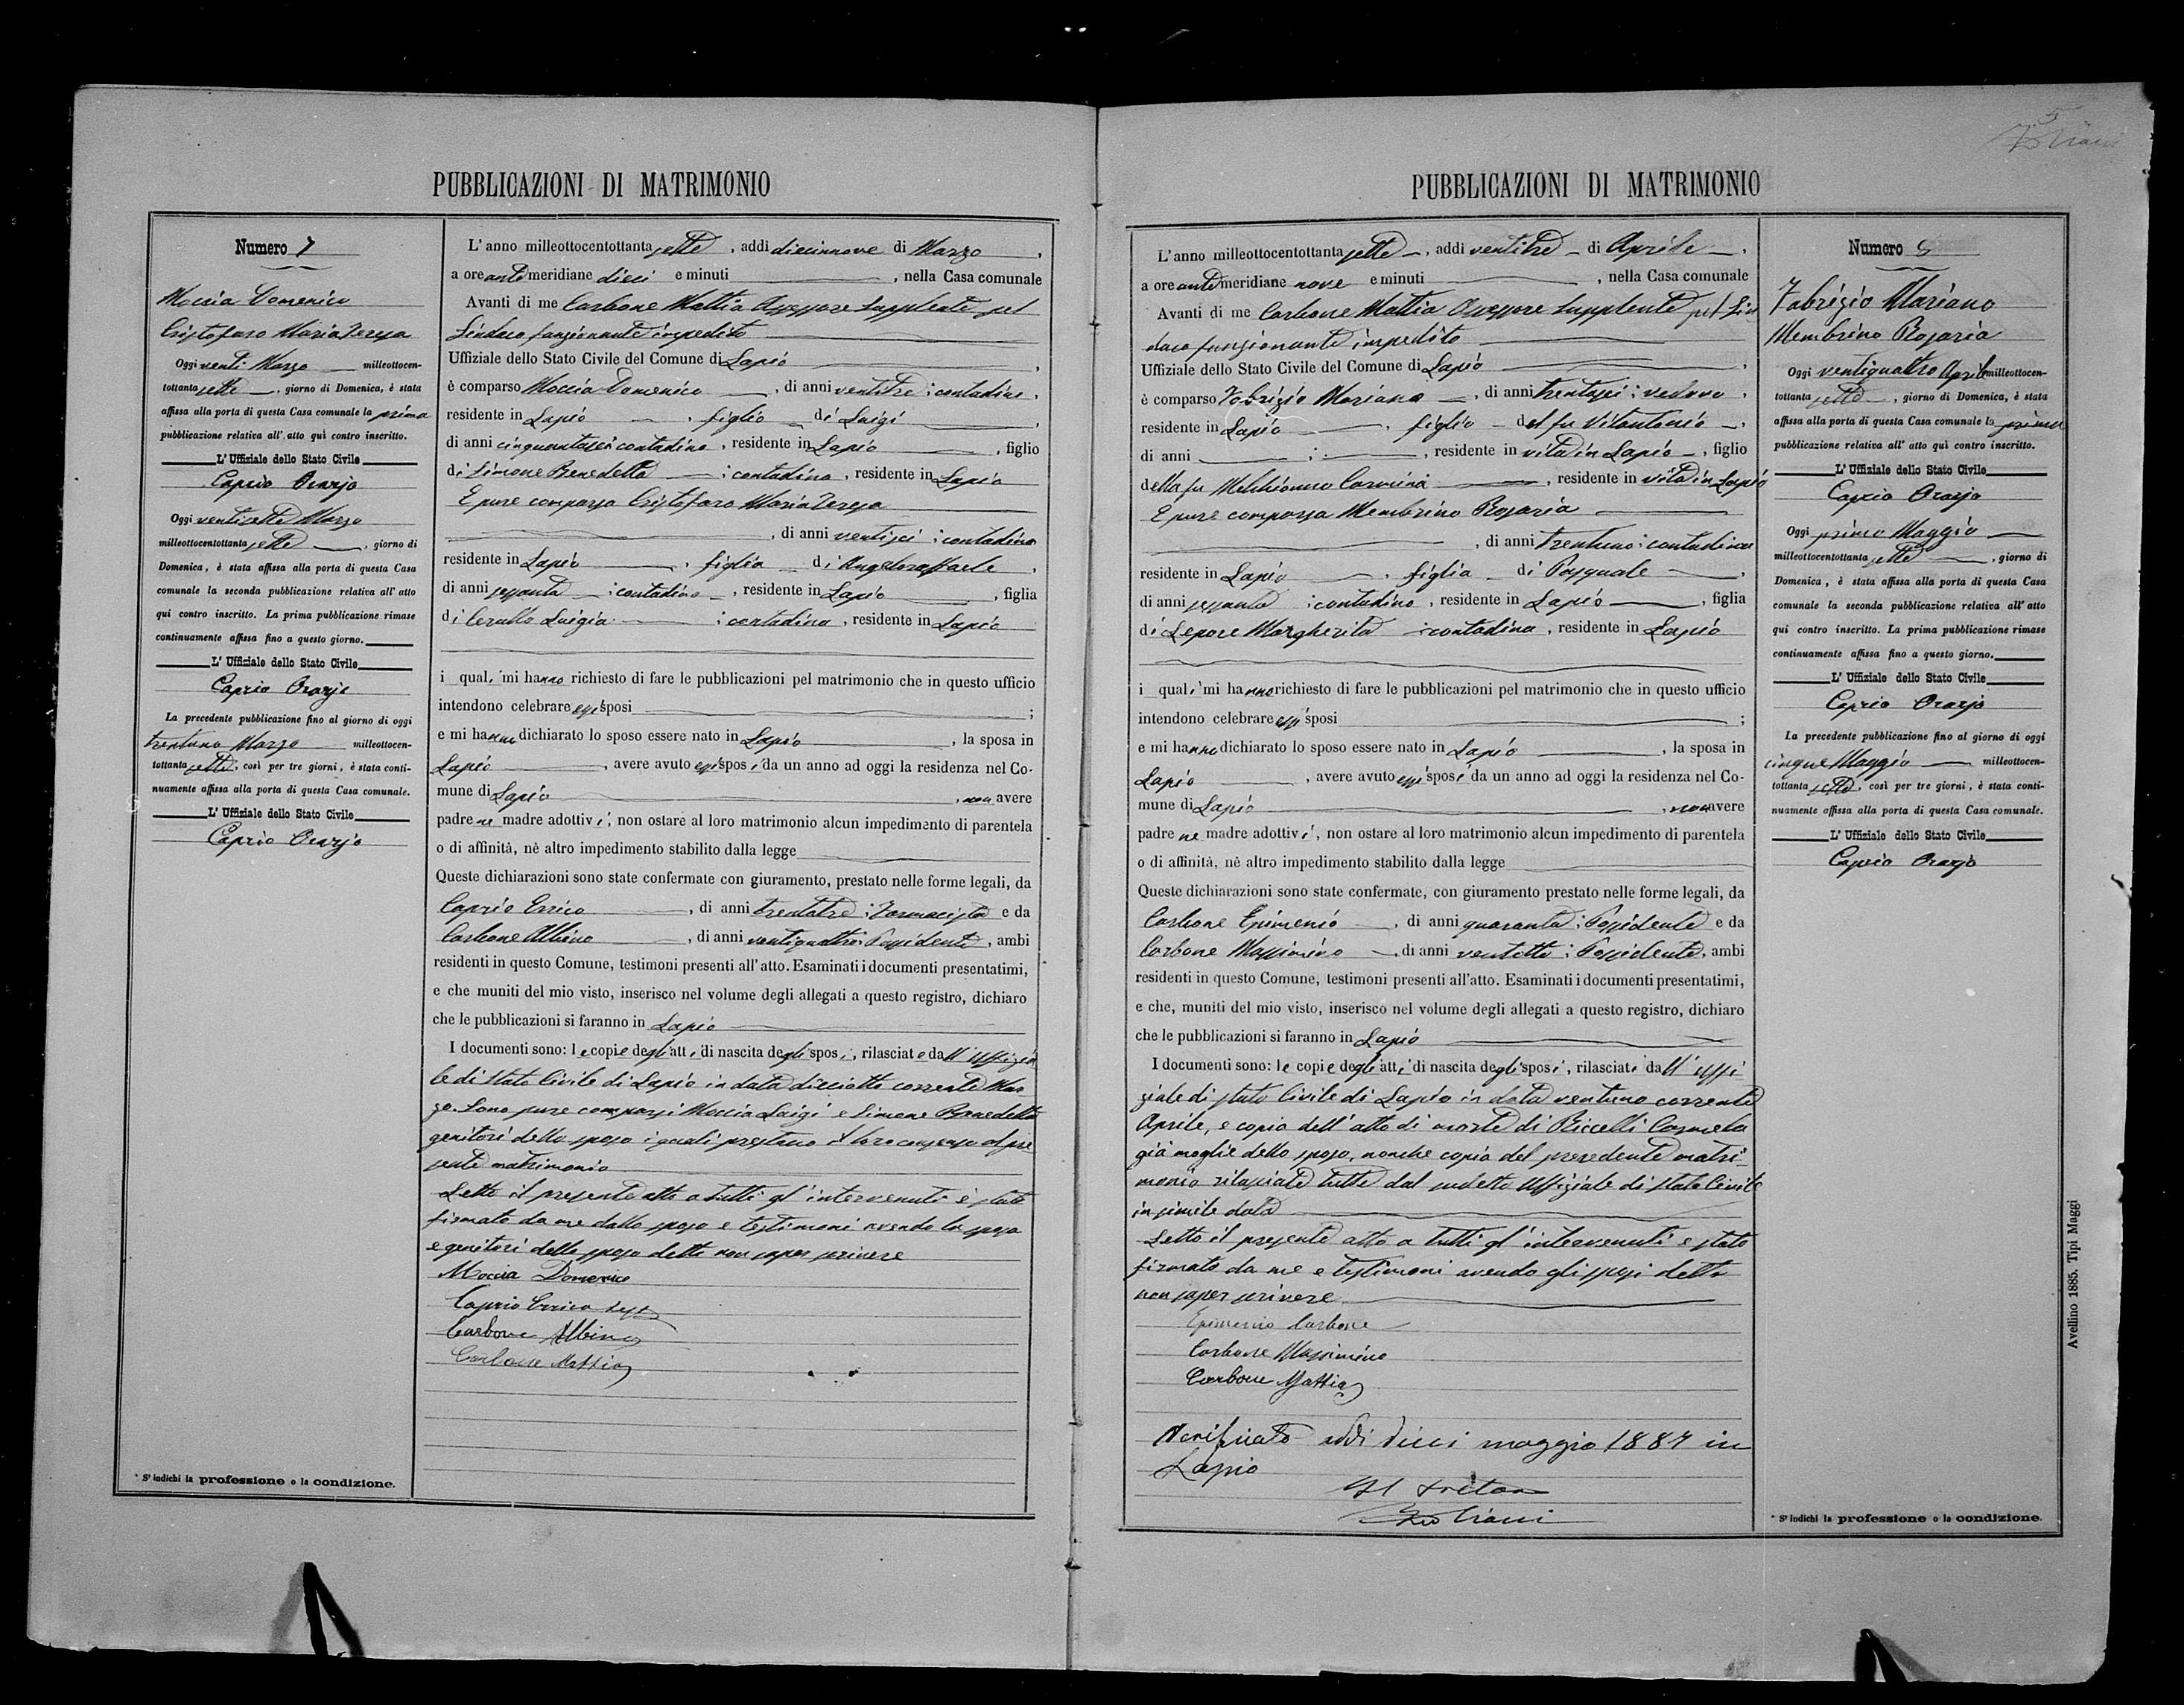 PUBBLICAZIONI DI MATRIMONIO
Numero 7
Moccia Domenico
Cristofaro Maria Teresa
Oggi venti Marzo milleottocen-
tottanta sette, giorno di Domenica, è stata
affissa alla porta di questa Casa comunale la prima
pubblicazione relativa all' atto quì contro inscritto.
L' Uffiziale dello Stato Civile
Caprio Orazio
Oggi ventisette Marzo
milleottocentottanta sette, giorno di
Domenica, è stata affissa alla porta di questa Casa
comunale la seconda pubblicazione relativa all' atto
qui contro inscritto. La prima pubblicazione rimase
continuamente affissa fino a questo giorno.
L' Uffiziale dello Stato Civile
Caprio Orazio
La precedente pubblicazione fino al giorno di oggi
trentuno Marzo milleottocen-
tottanta sette, così per tre giorni, è stata conti-
nuamente affissa alla porta di questa Casa comunale.
L' Uffiziale dello Stato Civile
Caprio Orazio
* Si indichi la professione o la condizione.
L' anno milleottocentottanta sette, addì diecinnove di Marzo,
a ore anti meridiane dieci e minuti , nella Casa comunale
Avanti di me Carbone Mattia Assessore Supplente pel
Sindaco funzionante impedito
Uffiziale dello Stato Civile del Comune di Lapio,
è comparso Moccia Domenico, di anni ventitre; contadino,
residente in Lapio, figlio di Luigi,
di anni cinquantasei contadino, residente in Lapio, figlio
di Simone Benedetta; contadina, residente in Lapio
E pure comparsa Cristofaro Maria Teresa
, di anni ventisei; contadina
residente in Lapio, figlia di Angeloraffaele,
di anni sessanta; contadino, residente in Lapio, figlia
di Cerullo Luigia; contadina, residente in Lapio
i quali mi hanno richiesto di fare le pubblicazioni pel matrimonio che in questo ufficio
intendono celebrare essi sposi ;
e mi hanno dichiarato lo sposo essere nato in Lapio, la sposa in
Lapio, avere avuto essi sposi da un anno ad oggi la residenza nel Co-
mune di Lapio, non avere
padre ne madre adottivi, non ostare al loro matrimonio alcun impedimento di parentela
o di affinità, nè altro impedimento stabilito dalla legge
Queste dichiarazioni sono state confermate con giuramento, prestato nelle forme legali, da
Caprio Errico, di anni trentatre; Farmacista e da
Carbone Albino, di anni ventiquattro; Possidente, ambi
residenti in questo Comune, testimoni presenti all' atto. Esaminati i documenti presentatimi,
e che muniti del mio visto, inserisco nel volume degli allegati a questo registro, dichiaro
che le pubblicazioni si faranno in Lapio
I documenti sono: le copie degli atti di nascita degli sposi, rilasciate dall' uffizia
le di stato Civile di Lapio in data dieciotto corrente Mar
zo. Sono pure comparsi Moccia Luigi e Simone Benedetta
genitori dello sposo i quali prestano il loro consenso al pre
sente matrimonio
Letto il presente atto a tutti gl' intervenuti è stato
firmato da me dallo sposo e testimoni avendo la sposa
e genitori dello sposo detto non saper scrivere
Moccia Domenico
Caprio Errico test
Carbone Albino
Carbone Mattia
PUBBLICAZIONI DI MATRIMONIO
L' anno milleottocentottanta sette, addì ventitre di Aprile,
a ore anti meridiane nove e minuti , nella Casa comunale
Avanti di me Carbone Mattia Assessore Supplente pel Sin
daco funzionante impedito
Uffiziale dello Stato Civile del Comune di Lapio,
è comparso Fabrizio Mariano, di anni trentasei; vedovo,
residente in Lapio, figlio del fu Vitantonio,
di anni ; , residente in vita in Lapio, figlio
della fu Melchionno Carmina, residente in vita in Lapio
E pure comparsa Membrino Rosaria
, di anni trentuno; contadina
residente in Lapio, figlia di Pasquale,
di anni sessanta; contadino, residente in Lapio, figlia
di Lepore Margherita; contadina, residente in Lapio
i quali mi hanno richiesto di fare le pubblicazioni pel matrimonio che in questo ufficio
intendono celebrare essi sposi ;
e mi hanno dichiarato lo sposo essere nato in Lapio, la sposa in
Lapio, avere avuto essi sposi da un anno ad oggi la residenza nel Co-
mune di Lapio, non avere
padre ne madre adottivi, non ostare al loro matrimonio alcun impedimento di parentela
o di affinità, nè altro impedimento stabilito dalla legge
Queste dichiarazioni sono state confermate, con giuramento prestato nelle forme legali, da
Carbone Epimenio, di anni quaranta; Possidente e da
Carbone Massimino, di anni ventotto; Possidente, ambi
residenti in questo Comune, testimoni presenti all' atto. Esaminati i documenti presentatimi,
e che, muniti del mio visto, inserisco nel volume degli allegati a questo registro, dichiaro
che le pubblicazioni si faranno in Lapio
I documenti sono: le copie degli atti di nascita degli sposi, rilasciati dall' uffi-
ziale di stato Civile di Lapio in data ventuno corrente
Aprile, e copia dell' atto di morte di Riccelli Carmela
già moglie dello sposo, nonche copia del precedente matri-
monio rilasciate tutte dal sudetto Uffiziale di stato Civile
in simile data
Letto il presente atto a tutti gl' intervenuti e stato
firmato da me e testimoni avendo gli sposi detto
non saper scrivere
Epimenio Carbone
Carbone Massimino
Carbone Mattia
Verificato addì dieci maggio 1887 in
Lapio
Il Pretore
Numero 8
Fabrizio Mariano
Membrino Rosaria
Oggi ventiquattro Aprile milleottocen-
tottanta sette, giorno di Domenica, è stata
affissa alla porta di questa Casa comunale la prima
pubblicazione relativa all' atto quì contro inscritto.
L' Uffiziale dello Stato Civile
Caprio Orazio
Oggi primo Maggio
milleottocentottanta sette, giorno di
Domenica, è stata affissa alla porta di questa Casa
comunale la seconda pubblicazione relativa all' atto
qui contro inscritto. La prima pubblicazione rimase
continuamente affissa fino a questo giorno.
L' Uffiziale dello Stato Civile
Caprio Orazio
La precedente pubblicazione fino al giorno di oggi
cinque Maggio milleottocen-
tottanta sette, così per tre giorni, è stata conti-
nuamente affissa alla porta di questa Casa comunale.
L' Uffiziale dello Stato Civile
Caprio Orazio
* Si indichi la professione o la condizione.
Avellino 1885. Tipi Maggi